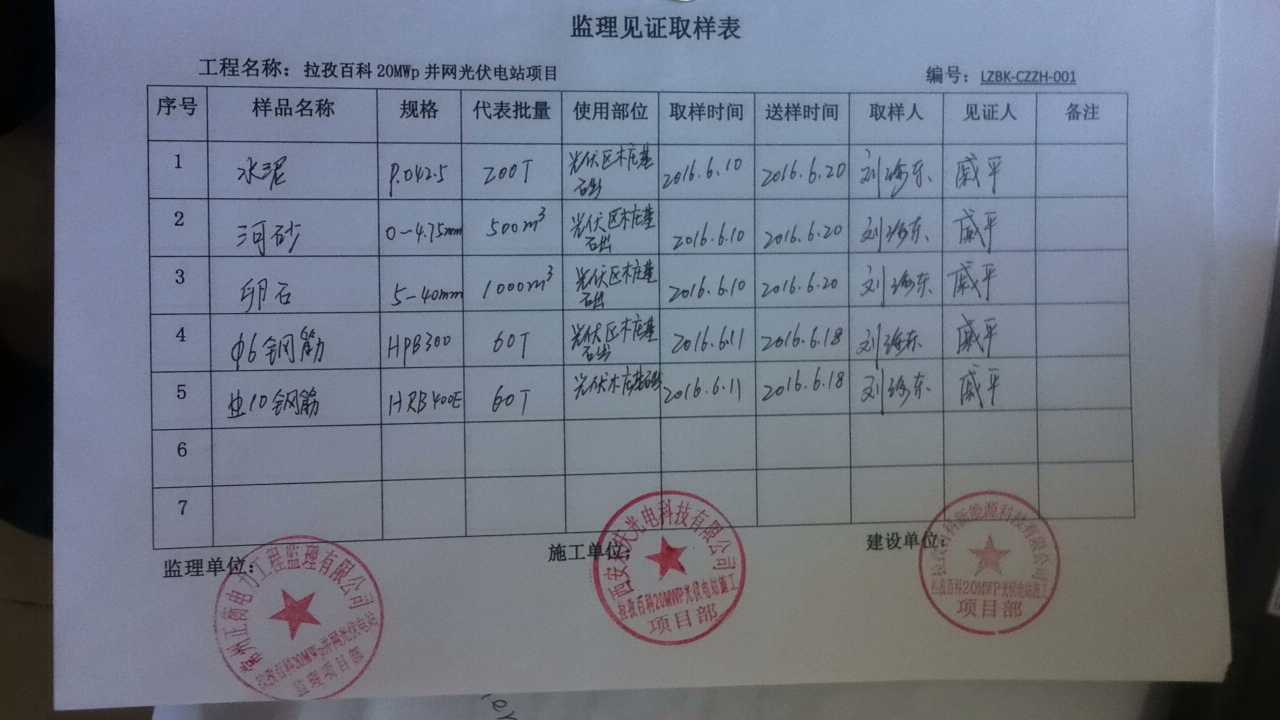 监理见证取样表
工程名称：拉孜百科 20MWp 并网光伏电站项目 编号：LZBK-CZZH-001
序号 样品名称 规格 代表批量 使用部位 取样时间 送样时间 取样人 见证人 备注
1 水泥 P.042.5 200T 光伏区桩基础 2016.6.10 2016.6.20 刘海东 戚平
2 河砂 0-4.75mm 500m³ 光伏区桩基础 2016.6.10 2016.6.20 刘海东 戚平
3 卵石 5-40mm 1000m³ 光伏区桩基础 2016.6.10 2016.6.20 刘海东 戚平
4 φ6钢筋 HPB300 60T 光伏区桩基础 2016.6.11 2016.6.18 刘海东 戚平
5 10钢筋 HRB400E 60T 光伏桩基础 2016.6.11 2016.6.18 刘海东 戚平
6
7
监理单位： 施工单位： 建设单位：
常州正衡电力工程监理有限公司
拉孜百科20MWp并网光伏电站
监理项目部
光电科技有限公司
拉孜百科20MWP光伏电站施工
项目部
新能源科技有限公司
拉孜百科20MWP光伏电站施工
项目部